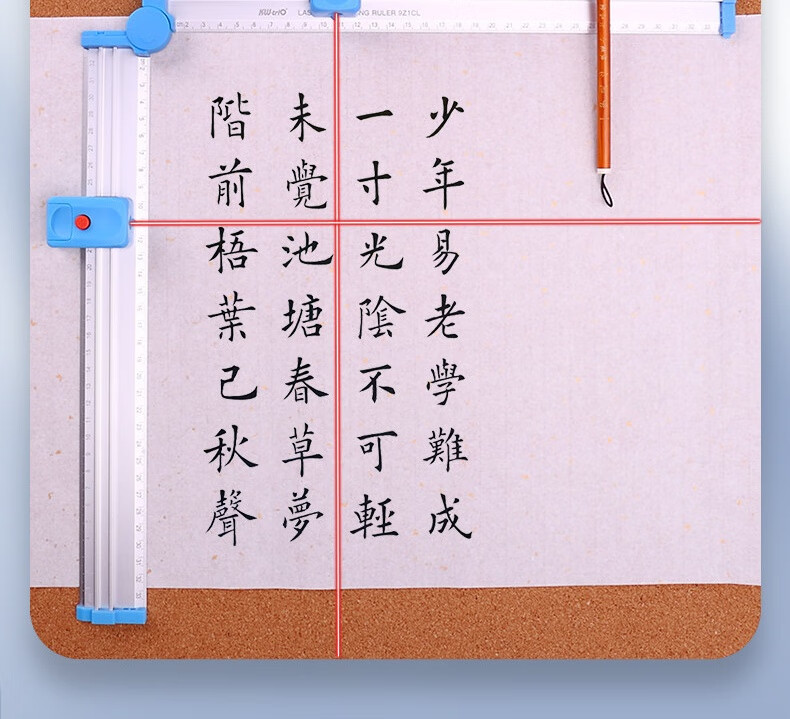 KW-triO
少年易老學難成
一寸光陰不可輕
未覺池塘春草夢
階前梧葉已秋聲